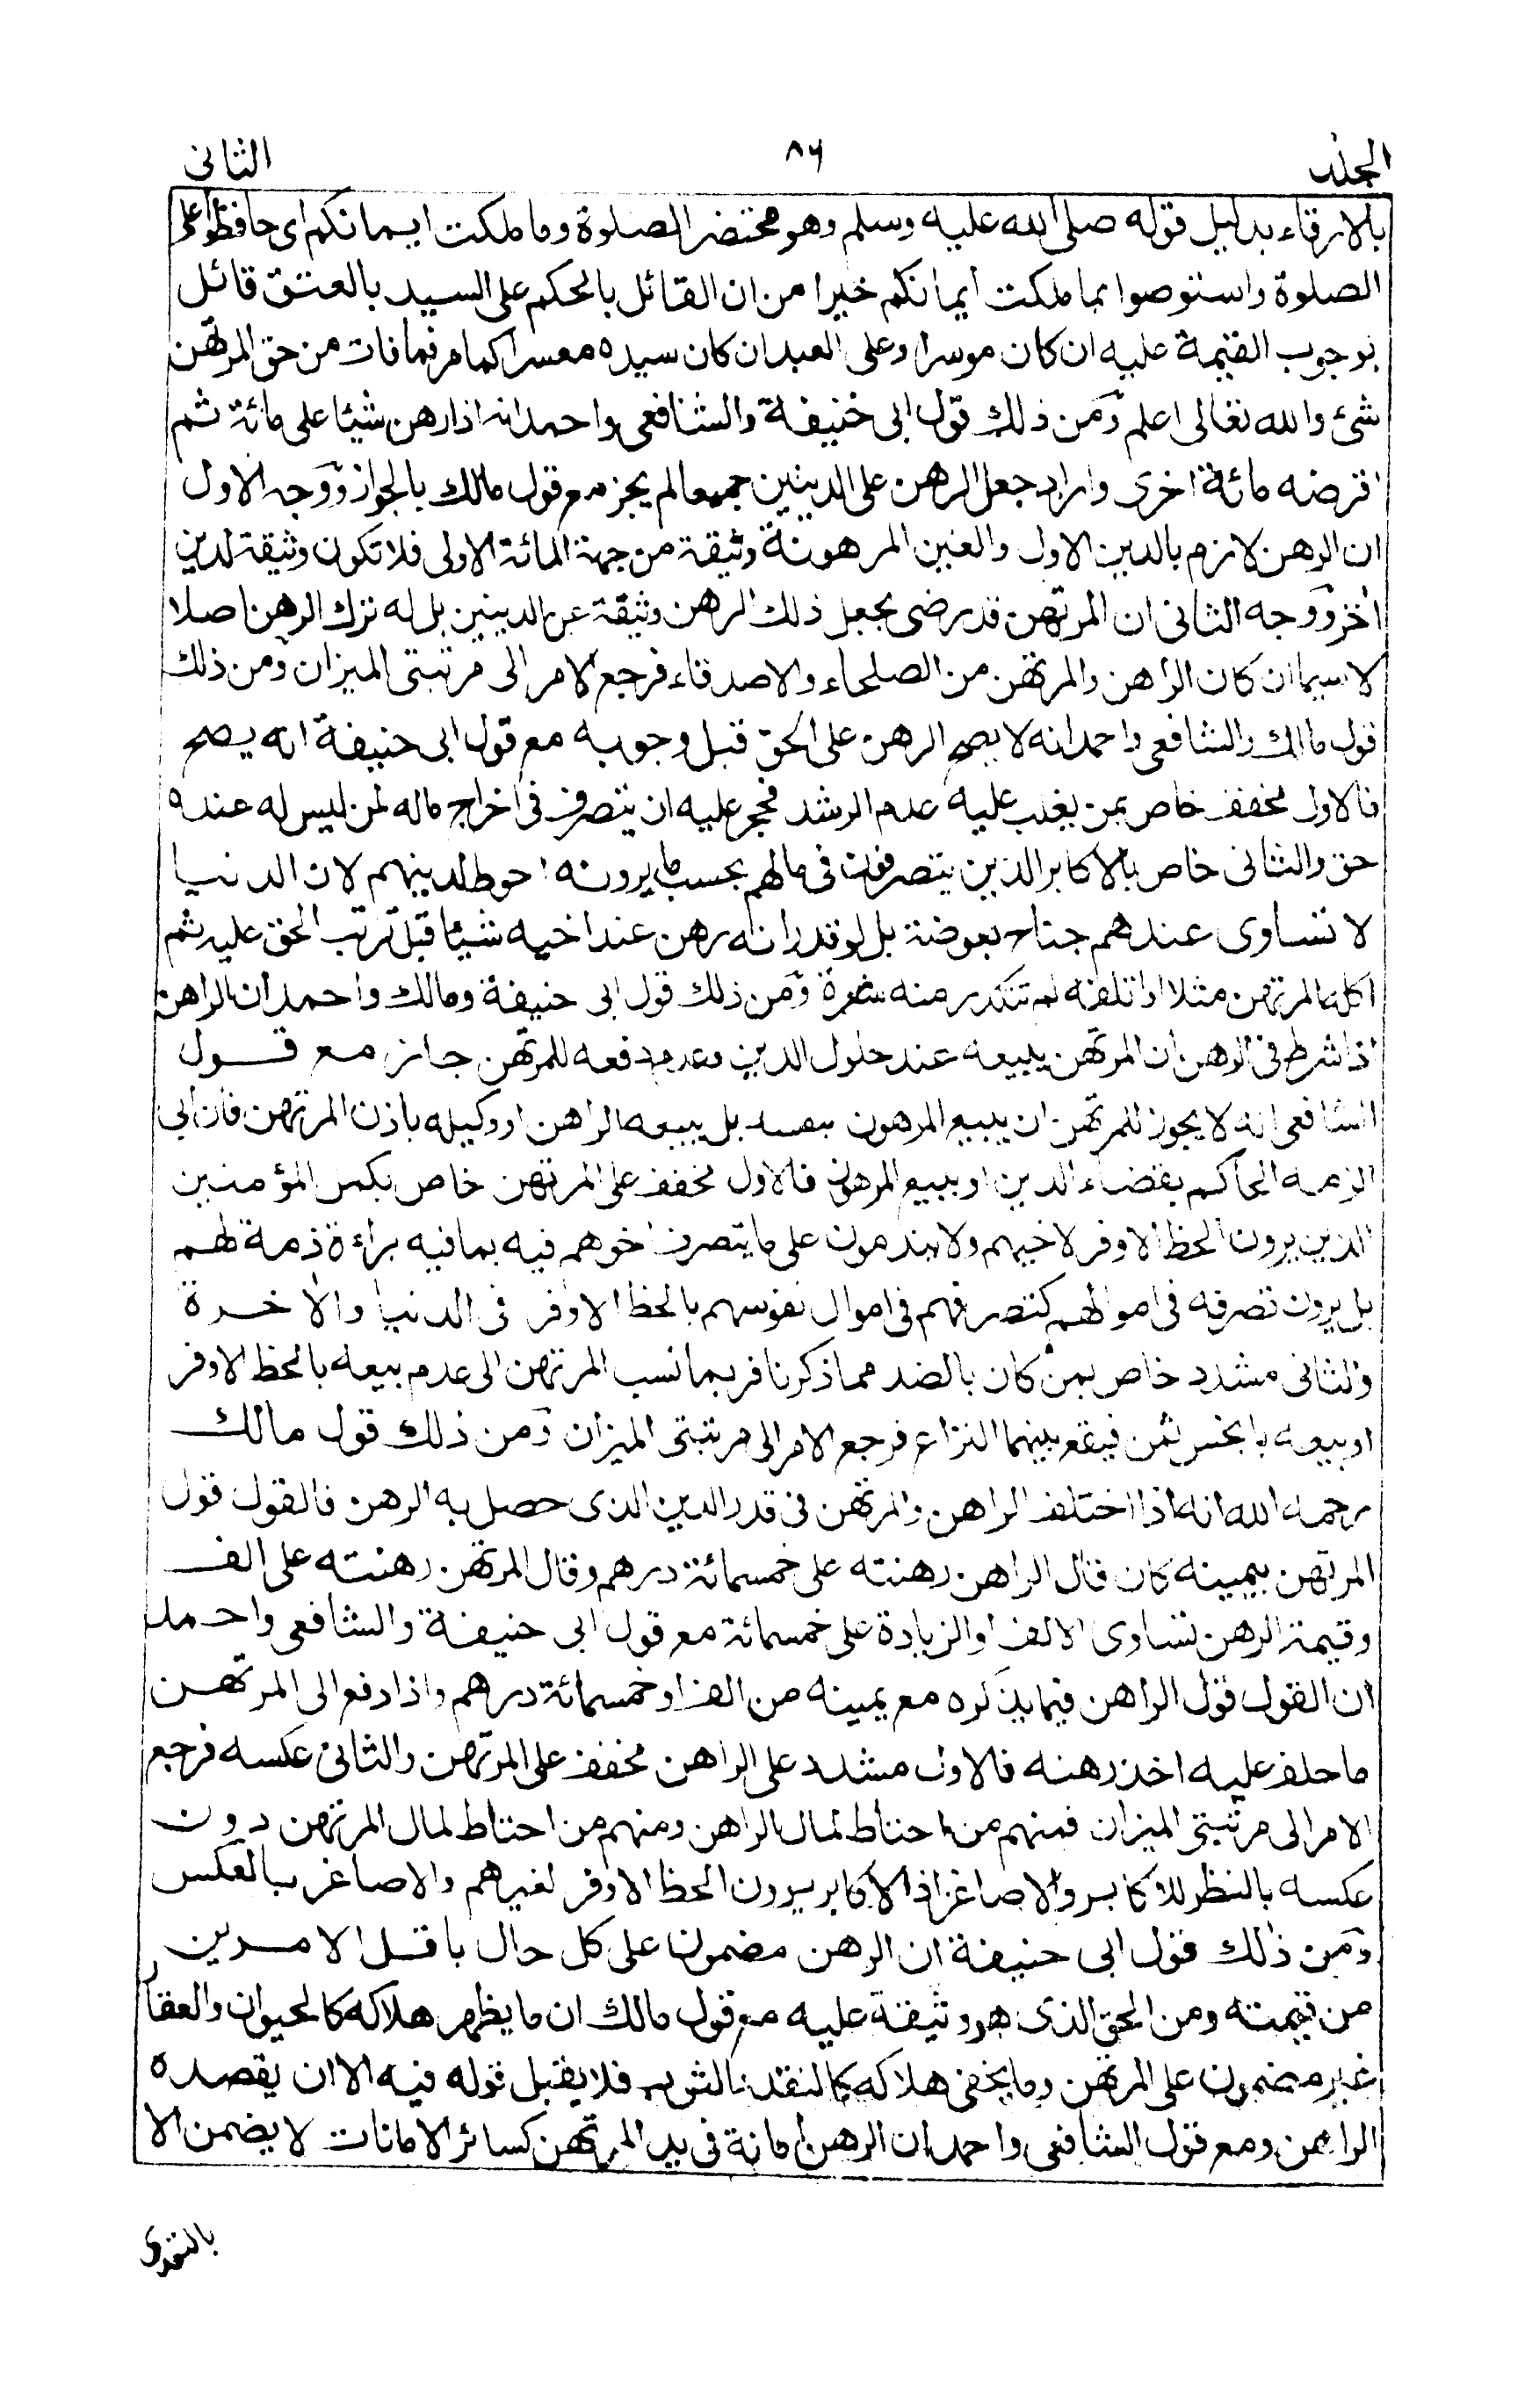 الجلد ٨٦ الثانى
بالارقاء بدليل قوله صلى الله عليه وسلم وهو محتضر الصلوة وما ملكت ايمانكم اى حافظوا على
الصلوة واستوصوا بما ملكت ايمانكم خيرا من ان القائل بالحكم على السيد بالعتق قائل
بوجوب القيمة عليه ان كان موسرا وعلى العبد ان كان سيده معسرا كما مر فما فات من حق المرتهن
شئ والله تعالى اعلم ومن ذلك قول ابى حنيفة والشافعى واحمد انه اذا رهن شيئا على مائة ثم
اقرضه مائة اخرى واراد جعل الرهن على الدينين جميعا لم يجز مع قول مالك بالجواز ووجه الاول
ان الرهن لازم بالدين الاول والعين المرهونة وثيقة من جهة المائة الاولى فلا تكون وثيقة لدين
اخر ووجه الثانى ان المرتهن قد رضى بجعل ذلك الرهن وثيقة عن الدينين بل له ترك الرهن اصلا
لا سيما ان كان الراهن والمرتهن من الصلحاء والاصدقاء فرجع الامر الى مرتبتى الميزان ومن ذلك
قول مالك والشافعى واحمد انه لا يصح الرهن على الحق قبل وجوبه مع قول ابى حنيفة انه يصح
فالاول مخفف خاص بمن يغلب عليه عدم الرشد فحجر عليه ان يتصرف فى اخراج ماله لمن ليس له عنده
حق والثانى خاص بالاكابر الذين يتصرفون فى مالهم بحسب ما يرونه احوط لدينهم لان الدنيا
لا تساوى عندهم جناح بعوضة بل لو قدر انه رهن عند اخيه شيئا قبل ترتب الحق عليه ثم
اكله المرتهن مثلا او اتلفه لم تتكدر منه شعرة ومن ذلك قول ابى حنيفة ومالك واحمد ان الراهن
اذا شرط فى الرهن ان المرتهن يبيعه عند حلول الدين وعدم دفعه للمرتهن جاز مع قول
الشافعى انه لا يجوز للمرتهن ان يبيع المرهون بنفسه بل يبيعه الراهن او وكيله باذن المرتهن فان ابى
الزمه الحاكم بقضاء الدين او ببيع المرهون فالاول مخفف على المرتهن خاص بكمل المؤمنين
الذين يرون الحظ الاوفر لاخيهم ولا يندمون على ما يتصرف اخوهم فيه بما فيه براءة ذمة لهم
بل يرون تصرفه فى اموالهم كتصرفهم فى اموال نفوسهم بالحظ الاوفر فى الدنيا والاخرة
والثانى مشدد خاص بمن كان بالضد مما ذكرنا فربما نسب المرتهن الى عدم بيعه بالحظ الاوفر
او بيعه بابخس ثمن فيقع بينهما النزاع فرجع الامر الى مرتبتى الميزان ومن ذلك قول مالك
رحمه الله انه اذا اختلف الراهن والمرتهن فى قدر الدين الذى حصل به الرهن فالقول قول
المرتهن بيمينه كان قال الراهن رهنته على خمسمائة درهم وقال المرتهن رهنته على الف
وقيمة الرهن تساوى الالف او الزيادة على خمسمائة مع قول ابى حنيفة والشافعى واحمد
ان القول قول الراهن فيما يذكره مع يمينه من الف او خمسمائة درهم واذا دفع الى المرتهن
ما حلف عليه اخذ رهنه فالاول مشدد على الراهن مخفف على المرتهن والثانى عكسه فرجع
الامر الى مرتبتى الميزان فمنهم من احتاط لمال الراهن ومنهم من احتاط لمال المرتهن دون
عكسه بالنظر للاكابر والاصاغر اذ الاكابر يرون الحظ الاوفر لغيرهم والاصاغر بالعكس
ومن ذلك قول ابى حنيفة ان الرهن مضمون على كل حال باقل الامرين
من قيمته ومن الحق الذى هو وثيقة عليه مع قول مالك ان ما يظهر هلاكه كالحيوان والعقار
غير مضمون على المرتهن وما يخفى هلاكه كالنقد والثوب فلا يقبل قوله فيه الا ان يقصده
الراهن ومع قول الشافعى واحمد ان الرهن امانة فى يد المرتهن كسائر الامانات لا يضمن الا
بالتعدى